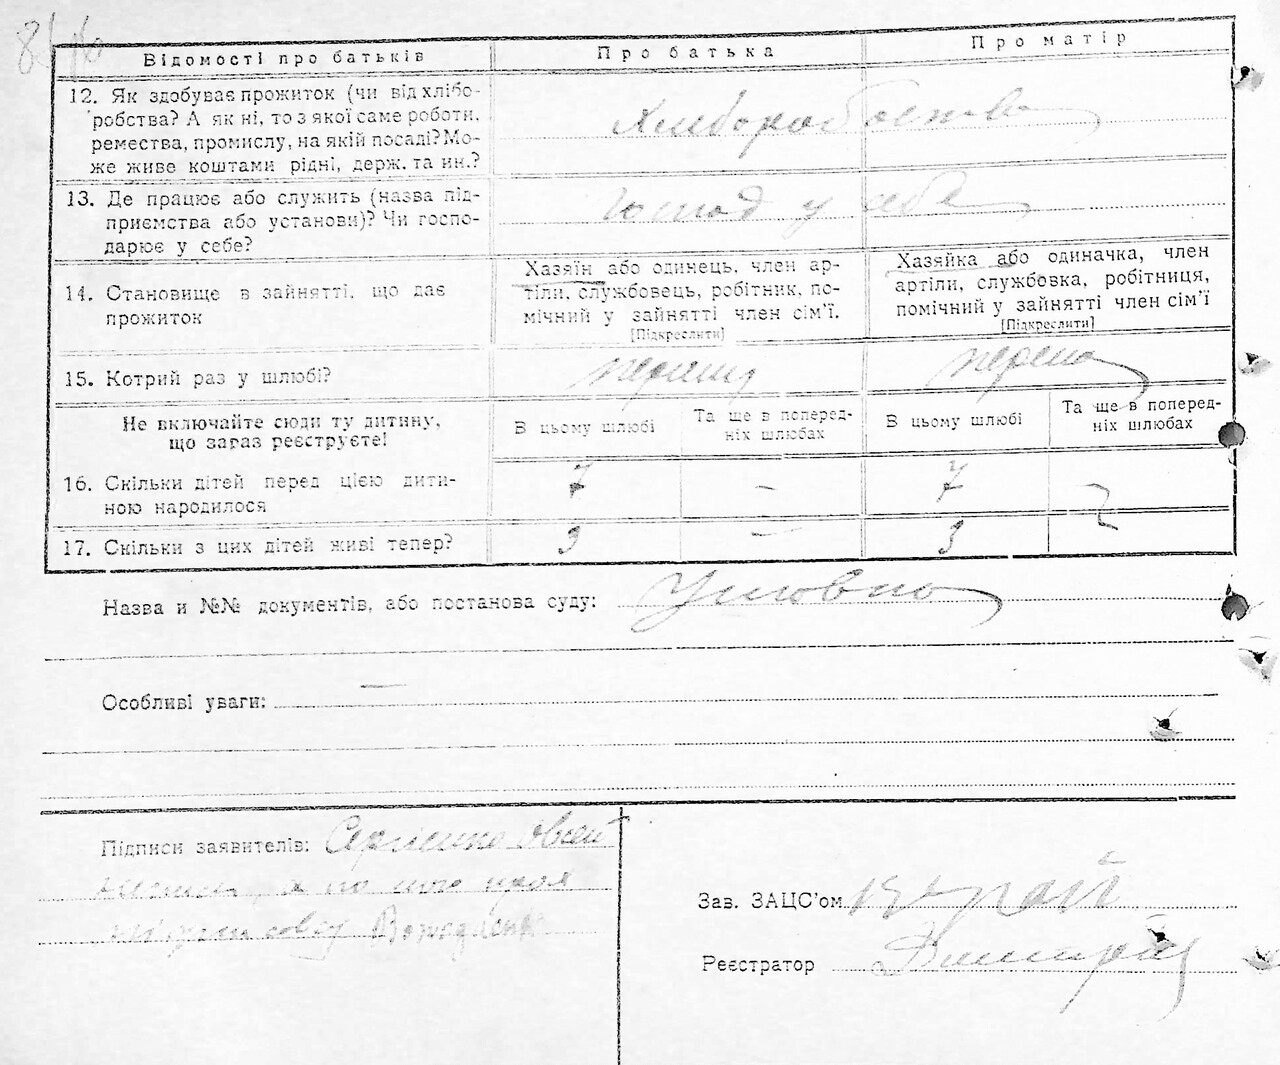 Відомості про батьків
Про батька
Про матір
12. Як здобуває прожиток (чи від хлібо-
робства? А як ні, то з якої саме роботи,
ремества, промислу, на якій посаді? Мо-
же живе коштами рідні, держ. та ин.?
Хлеборобство
13. Де працює або служить (назва під-
приємства або установи)? Чи госпо-
дарює у себе?
Господ у себе
14. Становище в зайнятті, що дає
прожиток
Хазяїн або одинець, член ар-
тіли, службовець, робітник, по-
мічний у зайнятті член сім'ї.
[Підкреслити]
Хазяйка або одиначка, член
артіли, службовка, робітниця,
помічний у зайнятті член сім'ї
[Підкреслити]
15. Котрий раз у шлюбі?
перший
перша
Не включайте сюди ту дитину,
що зараз реєструєте!
В цьому шлюбі
Та ще в поперед-
ніх шлюбах
В цьому шлюбі
Та ще в поперед-
ніх шлюбах
16. Скільки дітей перед цією дити-
ною народилося
7
–
7
17. Скільки з цих дітей живі тепер?
3
–
3
Назва и №№ документів, або постанова суду: Умовно
Особливі уваги: –
Підписи заявителів: Сергієнко
а по його
Зав. ЗАЦС'ом
Реєстратор